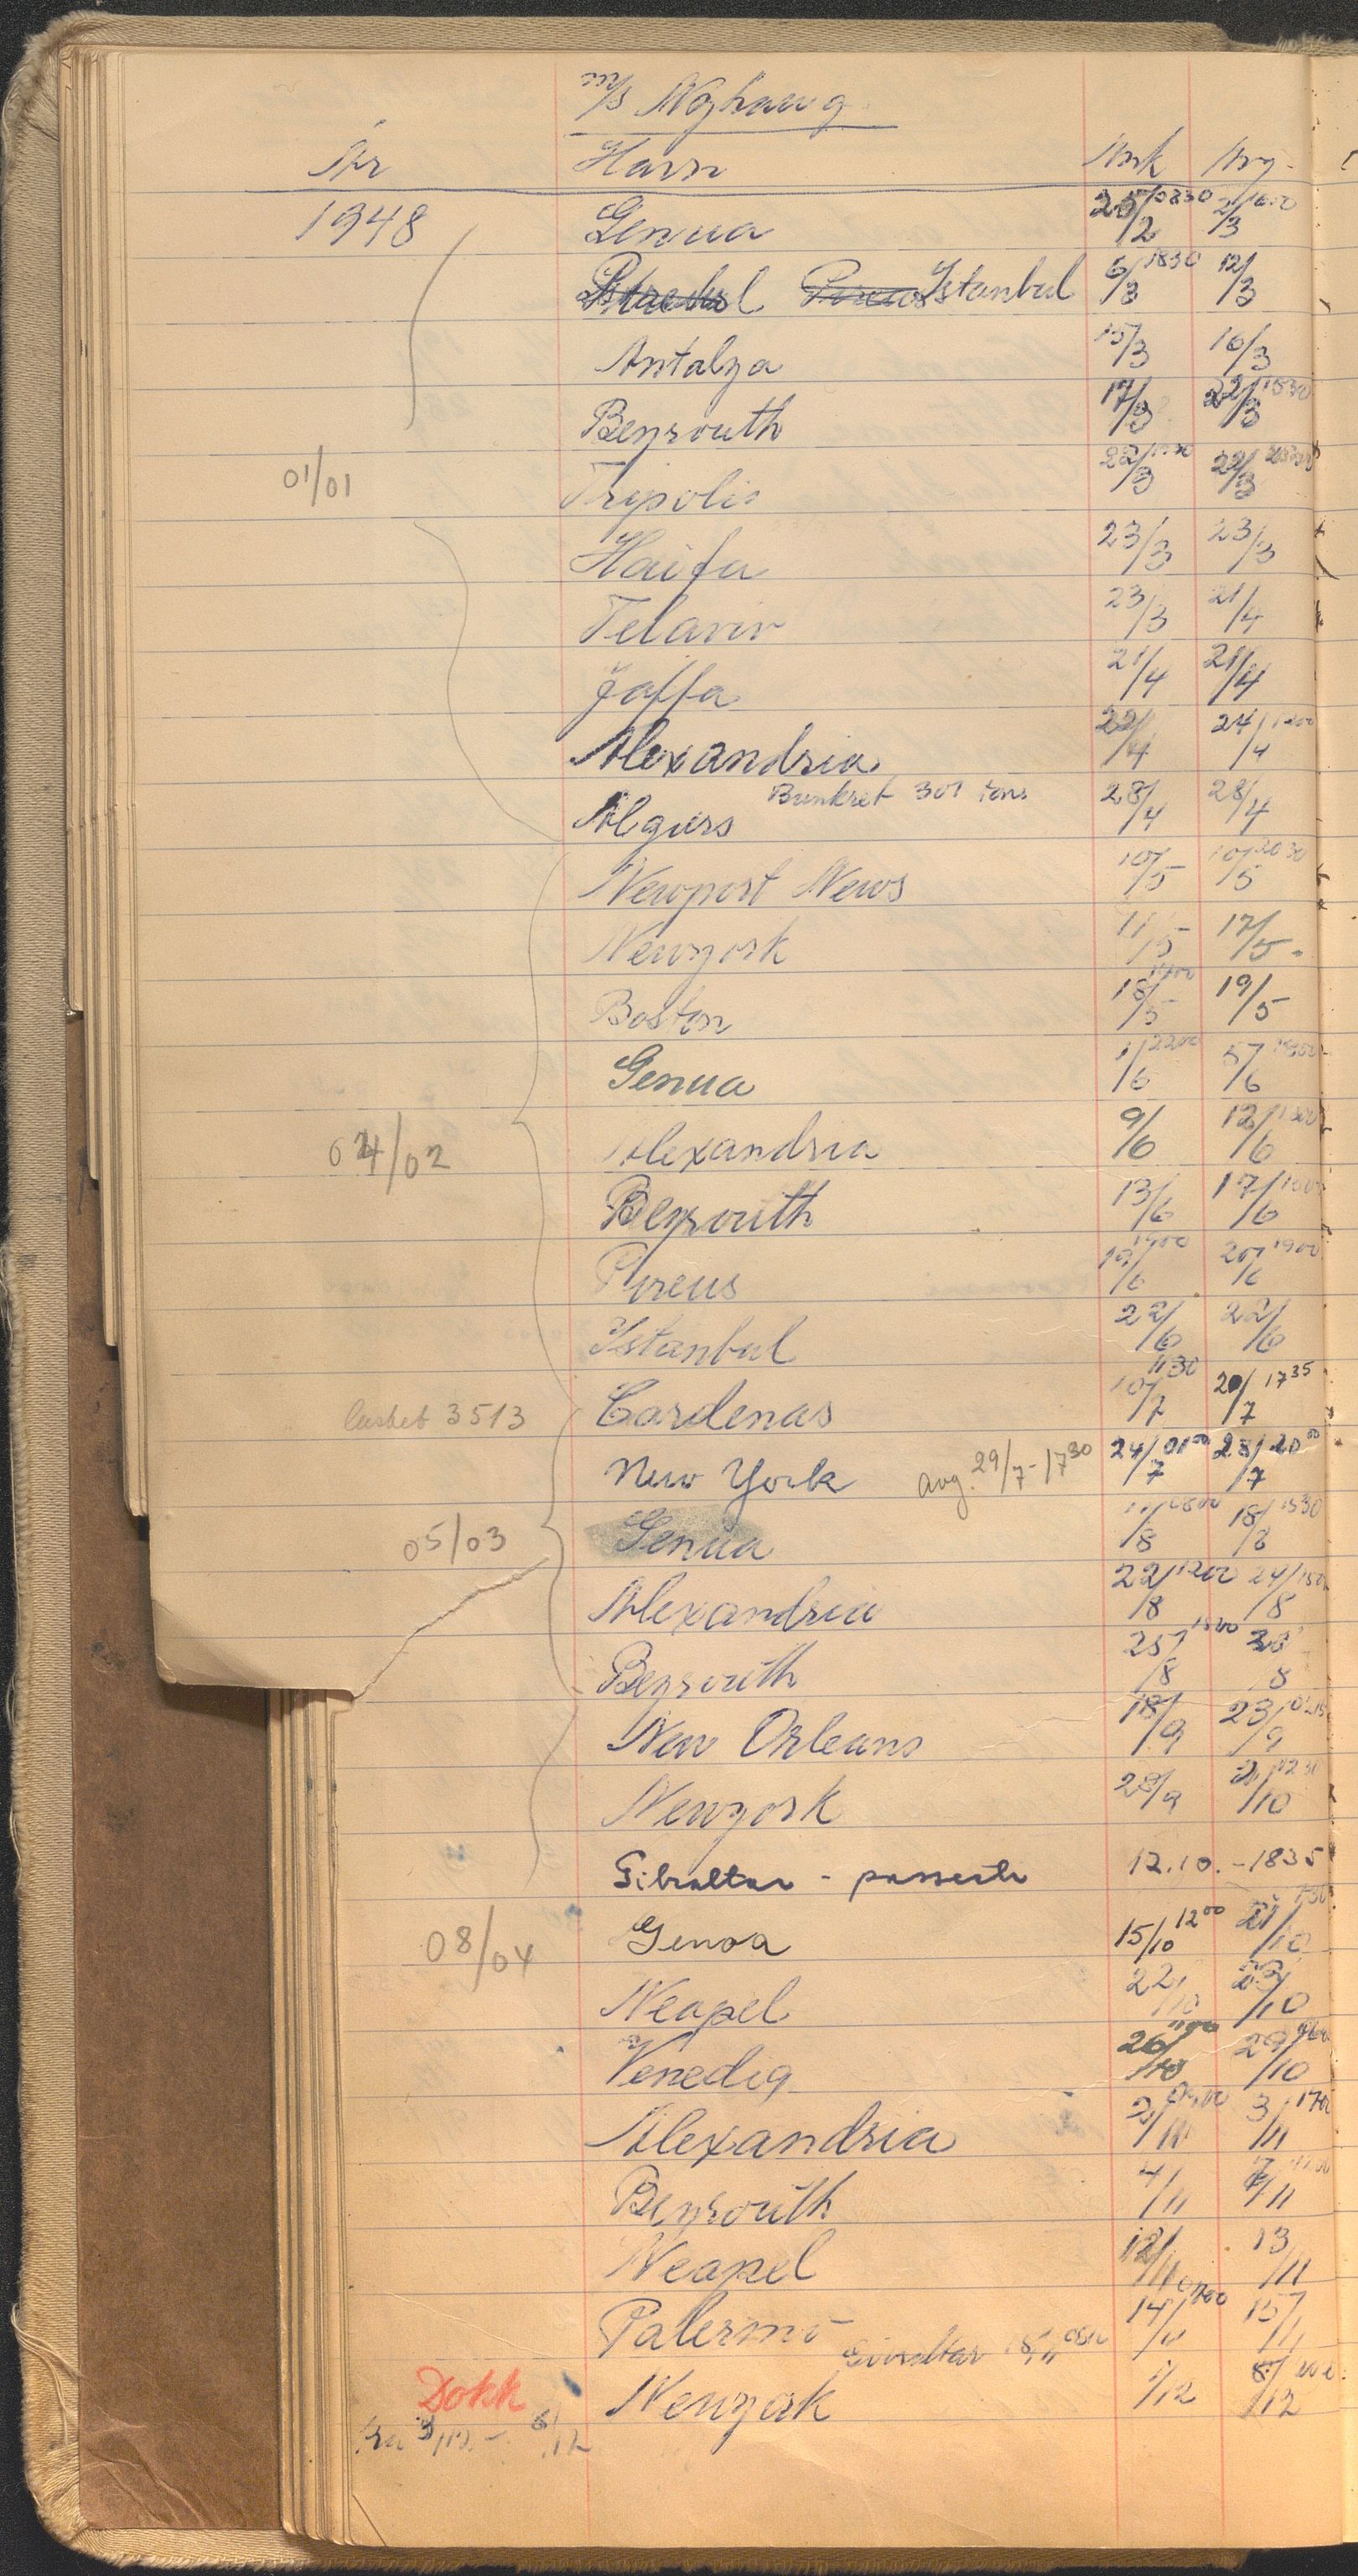 m/s Nyhaug
År Havn Ank Avg.
1948 Genua 25/2 0830 2/3 1600
Istanbul 6/3 1830 12/3
Antalya 15/3 16/3
Beyrouth 17/3 22/3 1530
01/01 Tripolis 22/3 22/3
Haifa 23/3 23/3
Telaviv 23/3 21/4
Jaffa 21/4 21/4
Alexandria 22/4 24/4 1200
Algiers Bunkret 301 tons 28/4 28/4
Newport News 10/5 10/5 2030
Newyork 11/5 17/5
Boston 18/5 1400 19/5
Genua 1/6 2200 5/6 1800
04/02 Alexandria 9/6 12/6 1800
Beyrouth 13/6 17/6
Pireus 19/6 1700 20/6 1900
Istanbul 22/6 22/6
lastet 3513 Cardenas 10/7 1130 20/7 1735
New York avg. 29/7 - 1730 24/7 0100 28/7 2000
05/03 Genua /8 18/8 1530
Alexandria 22/8 1200 24/8
Beyrouth 25/8 1800 30/8
New Orleans 18/9 23/9
Newyork 28/9 2/10
Gibraltar - passerte 12.10. - 1835
08/04 Genoa 15/10 1200 21/10
Neapel 22/10 23/10
Venedig 26/10 29/10
Alexandria 2/11 3/11 1700
Beyrouth 4/11 7/11
Neapel 12/11 13/11
Palermo 14/11 0700 15/11
Gibraltar
Dokk Newyork 1/12 8/12